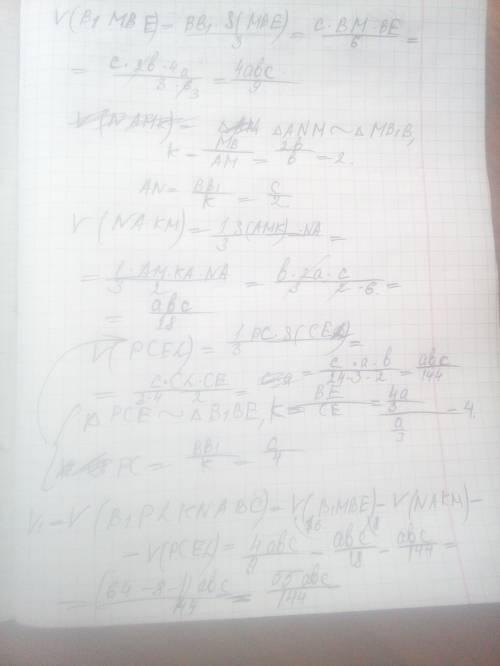 V(B₁MBE) = BB₁·S(MBE)/3 = c·BM·BE/6 =
= c·2b·4a/3·6₃ = 4abc/9
V(NAMK) = △ANM ~ △MB₁B,
k = MB/AM = 2b/b = 2.
AN = BB₁/k = c/2
V(NAKM) = 1/3 S(AMK)·NA =
= 1·AM·KA·NA/3 2 = b·2a·c/3 2·6 =
= abc/18
V(PCEL) = 1/3 PC·S(CEL) =
= c·CL·CE/3·4 2 = c·a·b/24·3·2 = abc/144
△PCE ~ △B₁BE, k = BE/CE = 4a/3 / a/3 = 4.
PC = BB₁/k = c/4
V₁ = V(B₁PLKNABC) = V(B₁MBE) - V(NAKM) -
- V(PCEL) = 4abc/9 - abc/18 - abc/144 =
= (64-8-1)abc/144 = 55abc/144